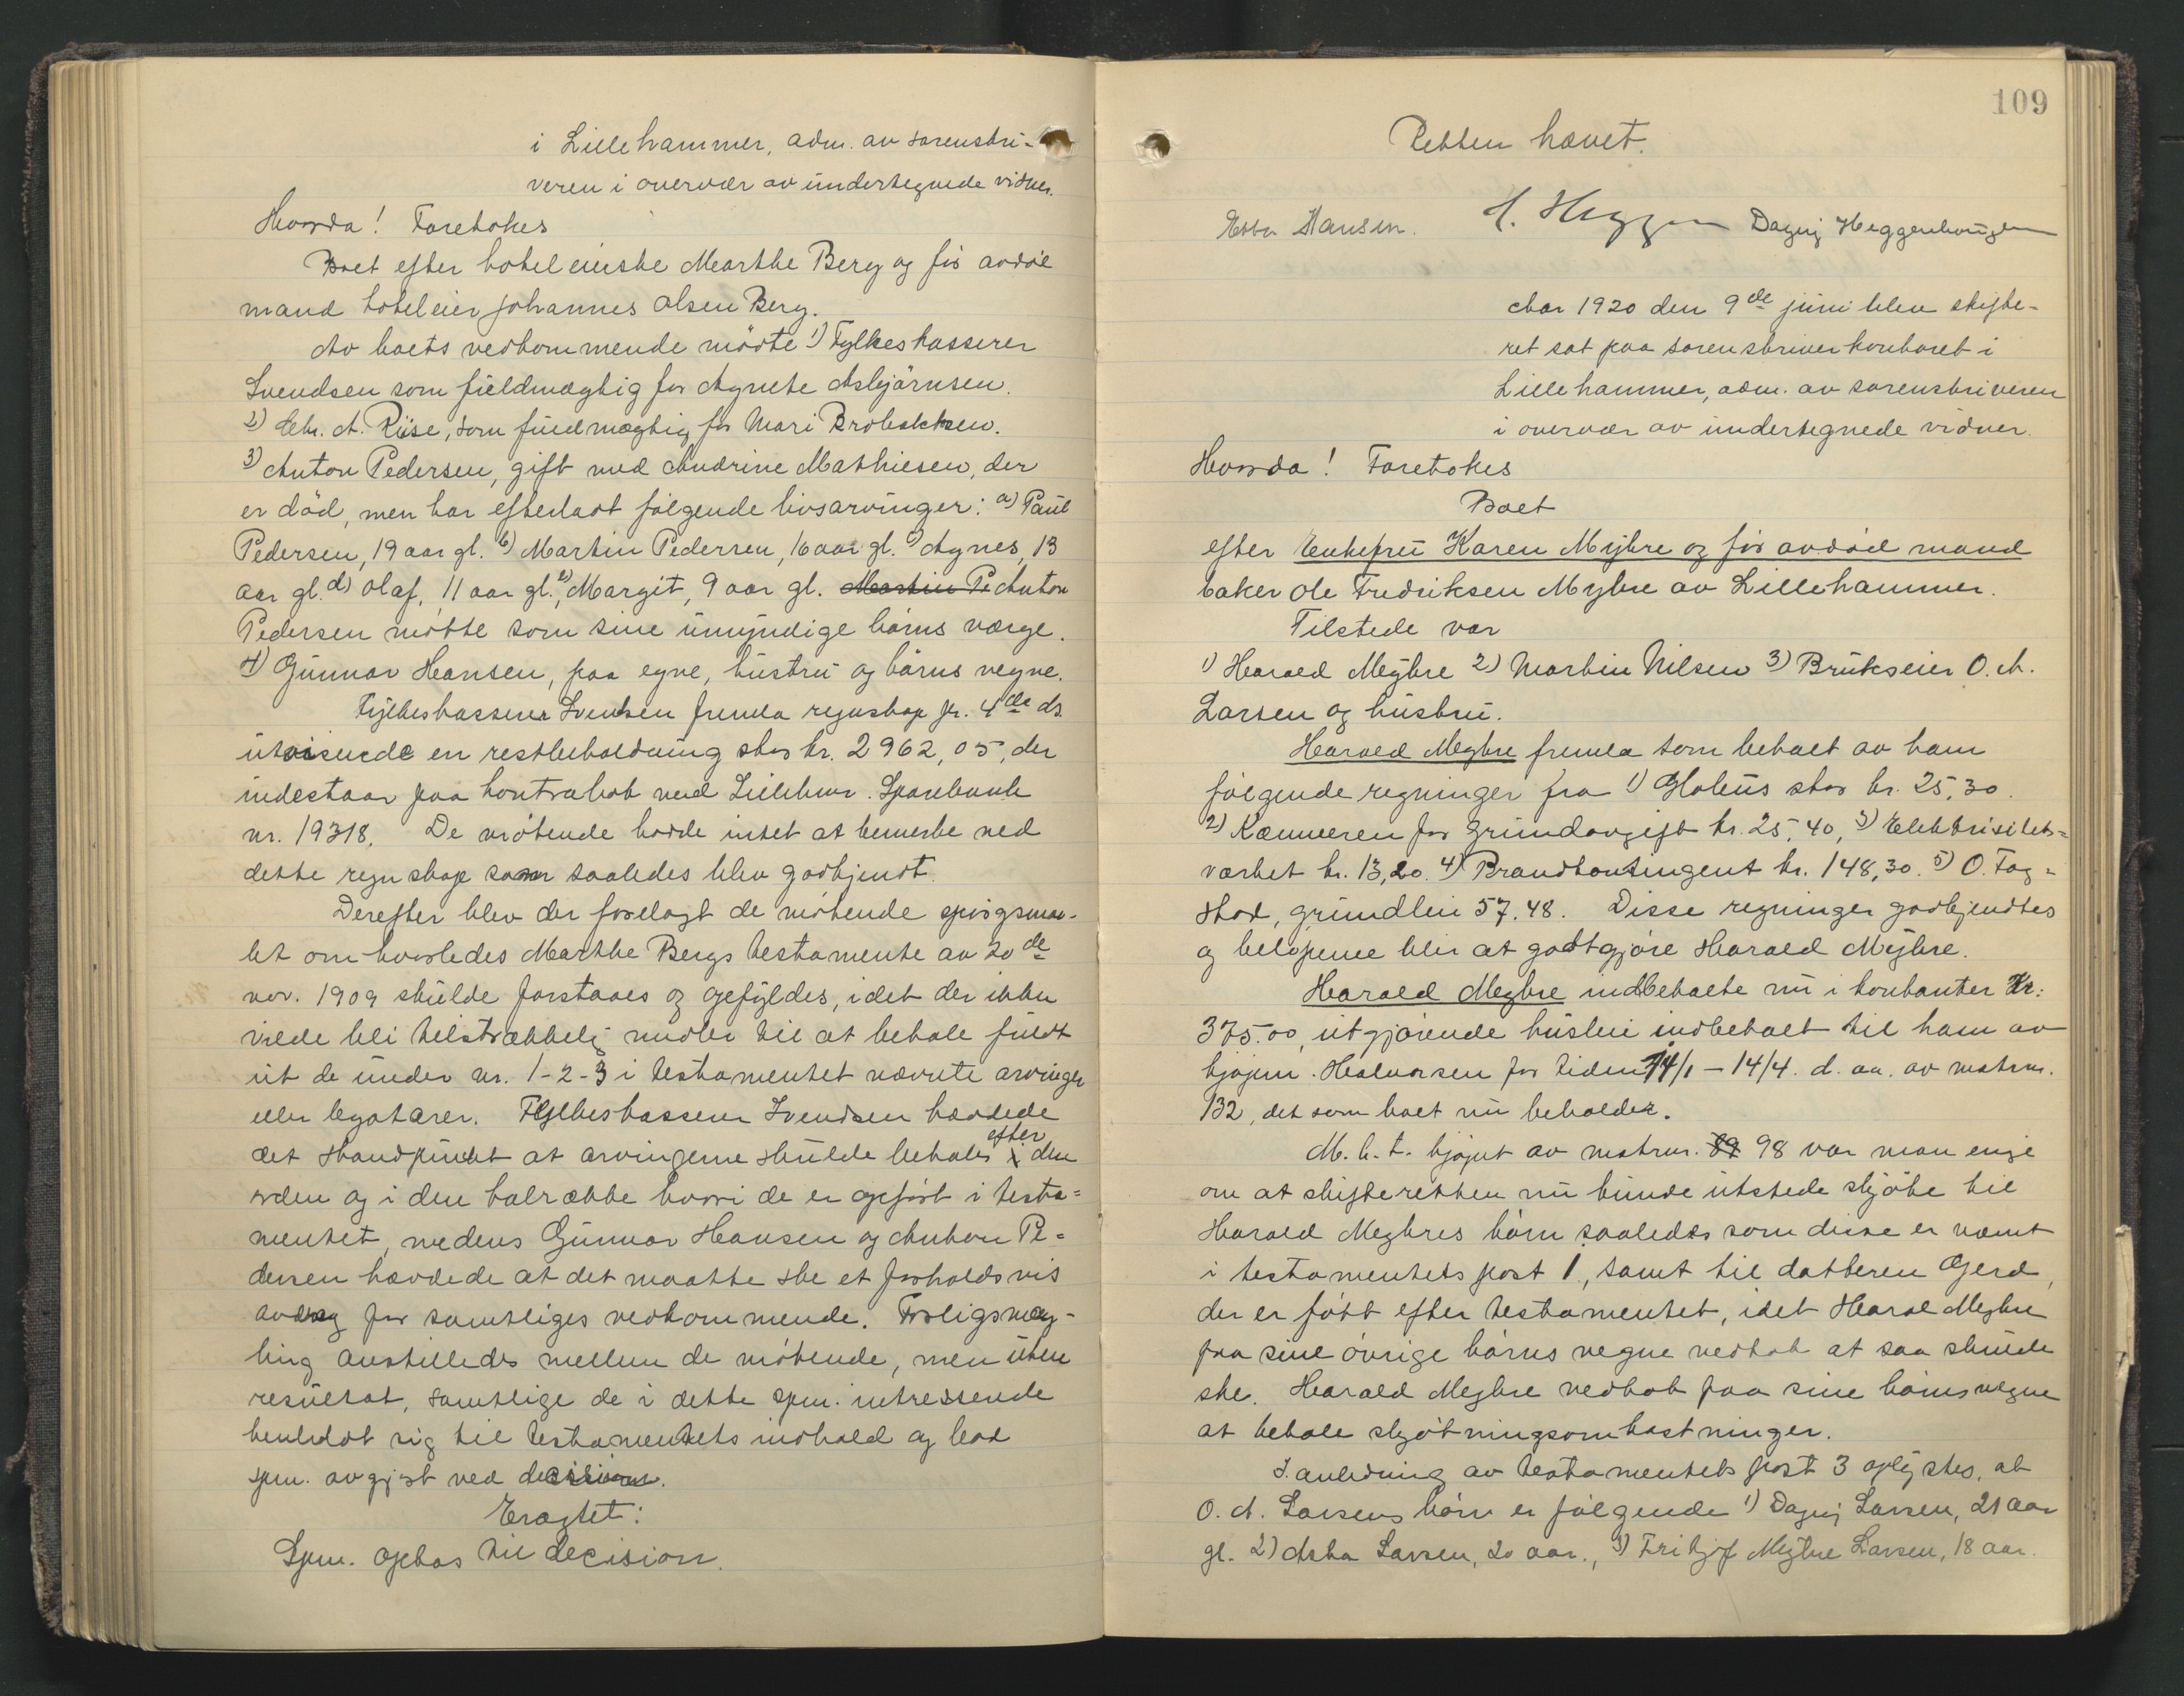 i Lillehammer, adm. av sorenskri-
veren i overvær av undertegnede vidner.
Hvorda! Foretokes
Boet efter hoteleierske Marthe Berg og før avdøde
mand hoteleier Johannes Olsen Berg.
Av boets vedkommende mødte 1) Fylkeskasserer
Svendsen som fuldmægtig for Agnete Asbjørnsen.
2) A. Riise, som fuldmægtig for Mari
3) Anton Pedersen, gift med Andrine Mathiesen, der
er død, men har efterlatt følgende livsarvinger: a) Paul
Pedersen, 19 aar gl. b) Martin Pedersen, 16 aar gl. c) Agnes, 13
aar gl. d) Olaf, 11 aar gl. e) Margit, 9 aar gl. Martin Pe Anton
Pedersen møtte som sine umyndige børns værge.
4) Gunnar Hansen, paa egne, hustru og børns vegne.
Fylkeskasserer Svendsen fremla regnskap pr. 4de ds.
utvisende en restbeholdning stor kr. 2962,05, der
indestaar paa kontrabok ved Lillehmr. Sparebank
nr. 19318. De møtende hadde intet at bemerke ved
dette regnskap som saaledes blev godkjendt.
Derefter blev der forelagt de møtende spørgsmaa-
let om hvorledes Marthe Bergs testamente av 20de
nov. 1909 skulde forstaaes og opfyldes, idet der ikke
vilde bli tilstrækkelig midler til at betale fuldt
ut de under nr. 1-2-3 i testamentet nævnte arvinger
eller legatarer. Fylkeskasserer Svendsen hævdede
det standpunkt at arvingerne skulde betales i efter den
orden og i den talrække hvori de er opført i testa=
mentet, medens Gunnar Hansen og Anton Pe=
dersen hævdede at det maatte ske et forholdsvis
avdrag for samtliges vedkommende. Forligsmæg-
ling anstilledes mellem de møtende, men uten
resultat, samtlige de i dette spm. intressende
henholdt sig til testamentets indhold og bad
spm. avgjort ved decision.
Eragtet:
Spm. optas til decision.
109
Retten hævet.
Hansen. H. Heggen Dagny Heggenhougen
Aar 1920 den 9de juni blev skifte-
ret sat paa sorenskriverkontoret i
Lillehammer, adm. av sorenskriveren
i overvær av undertegnede vidner.
Hvorda! Foretokes
Boet
efter Enkefru Karen Myhre og før avdød mand
baker Ole Fredriksen Myhre av Lillehammer.
Tilstede var
1) Harald Myhre 2) Martin Nilsen 3) Brukseier O. A.
Larsen og hustru.
Harald Myhre fremla som betalt av ham
følgende regninger fra 1) Globus stor kr. 25,30.
2) Kæmneren for grundavgift kr. 25,40, 3) Elektrisitets=
værket kr. 13,20. 4) Brandkontingent kr. 148,30. 5) O. Fag=
stad, grundleie 57.48. Disse regninger godkjendtes
og beløpene blir at godtgjøre Harald Myhre.
Harald Myhre indbetalte nu i kontanter Kr:
375.00, utgjørende husleie indbetalt til ham av
kjøpm. Halvorsen for tiden 14/1 – 14/4. d. aa. av matrnr.
132, det som boet nu beholder.
M. h. t. kjøpet av matrnr. 89 98 var man enige
om at skifteretten nu kunde utstede skjøte til
Harald Myhres børn saaledes som disse er nævnt
i testamentets post 1, samt til datteren Gerd,
der er født efter testamentet, idet Harald Myhre
paa sine øvrige børns vegne vedtok at saa skulde
ske. Harald Myhre vedtok paa sine børns vegne
at betale skjøtningsomkostninger.
I anledning av testamentets post 3 oplystes, at
O. A. Larsens børn er følgende 1) Dagny Larsen, 21 aar
gl. 2) Asta Larsen, 20 aar., 3) Fritjof Myhre Larsen, 18 aar.